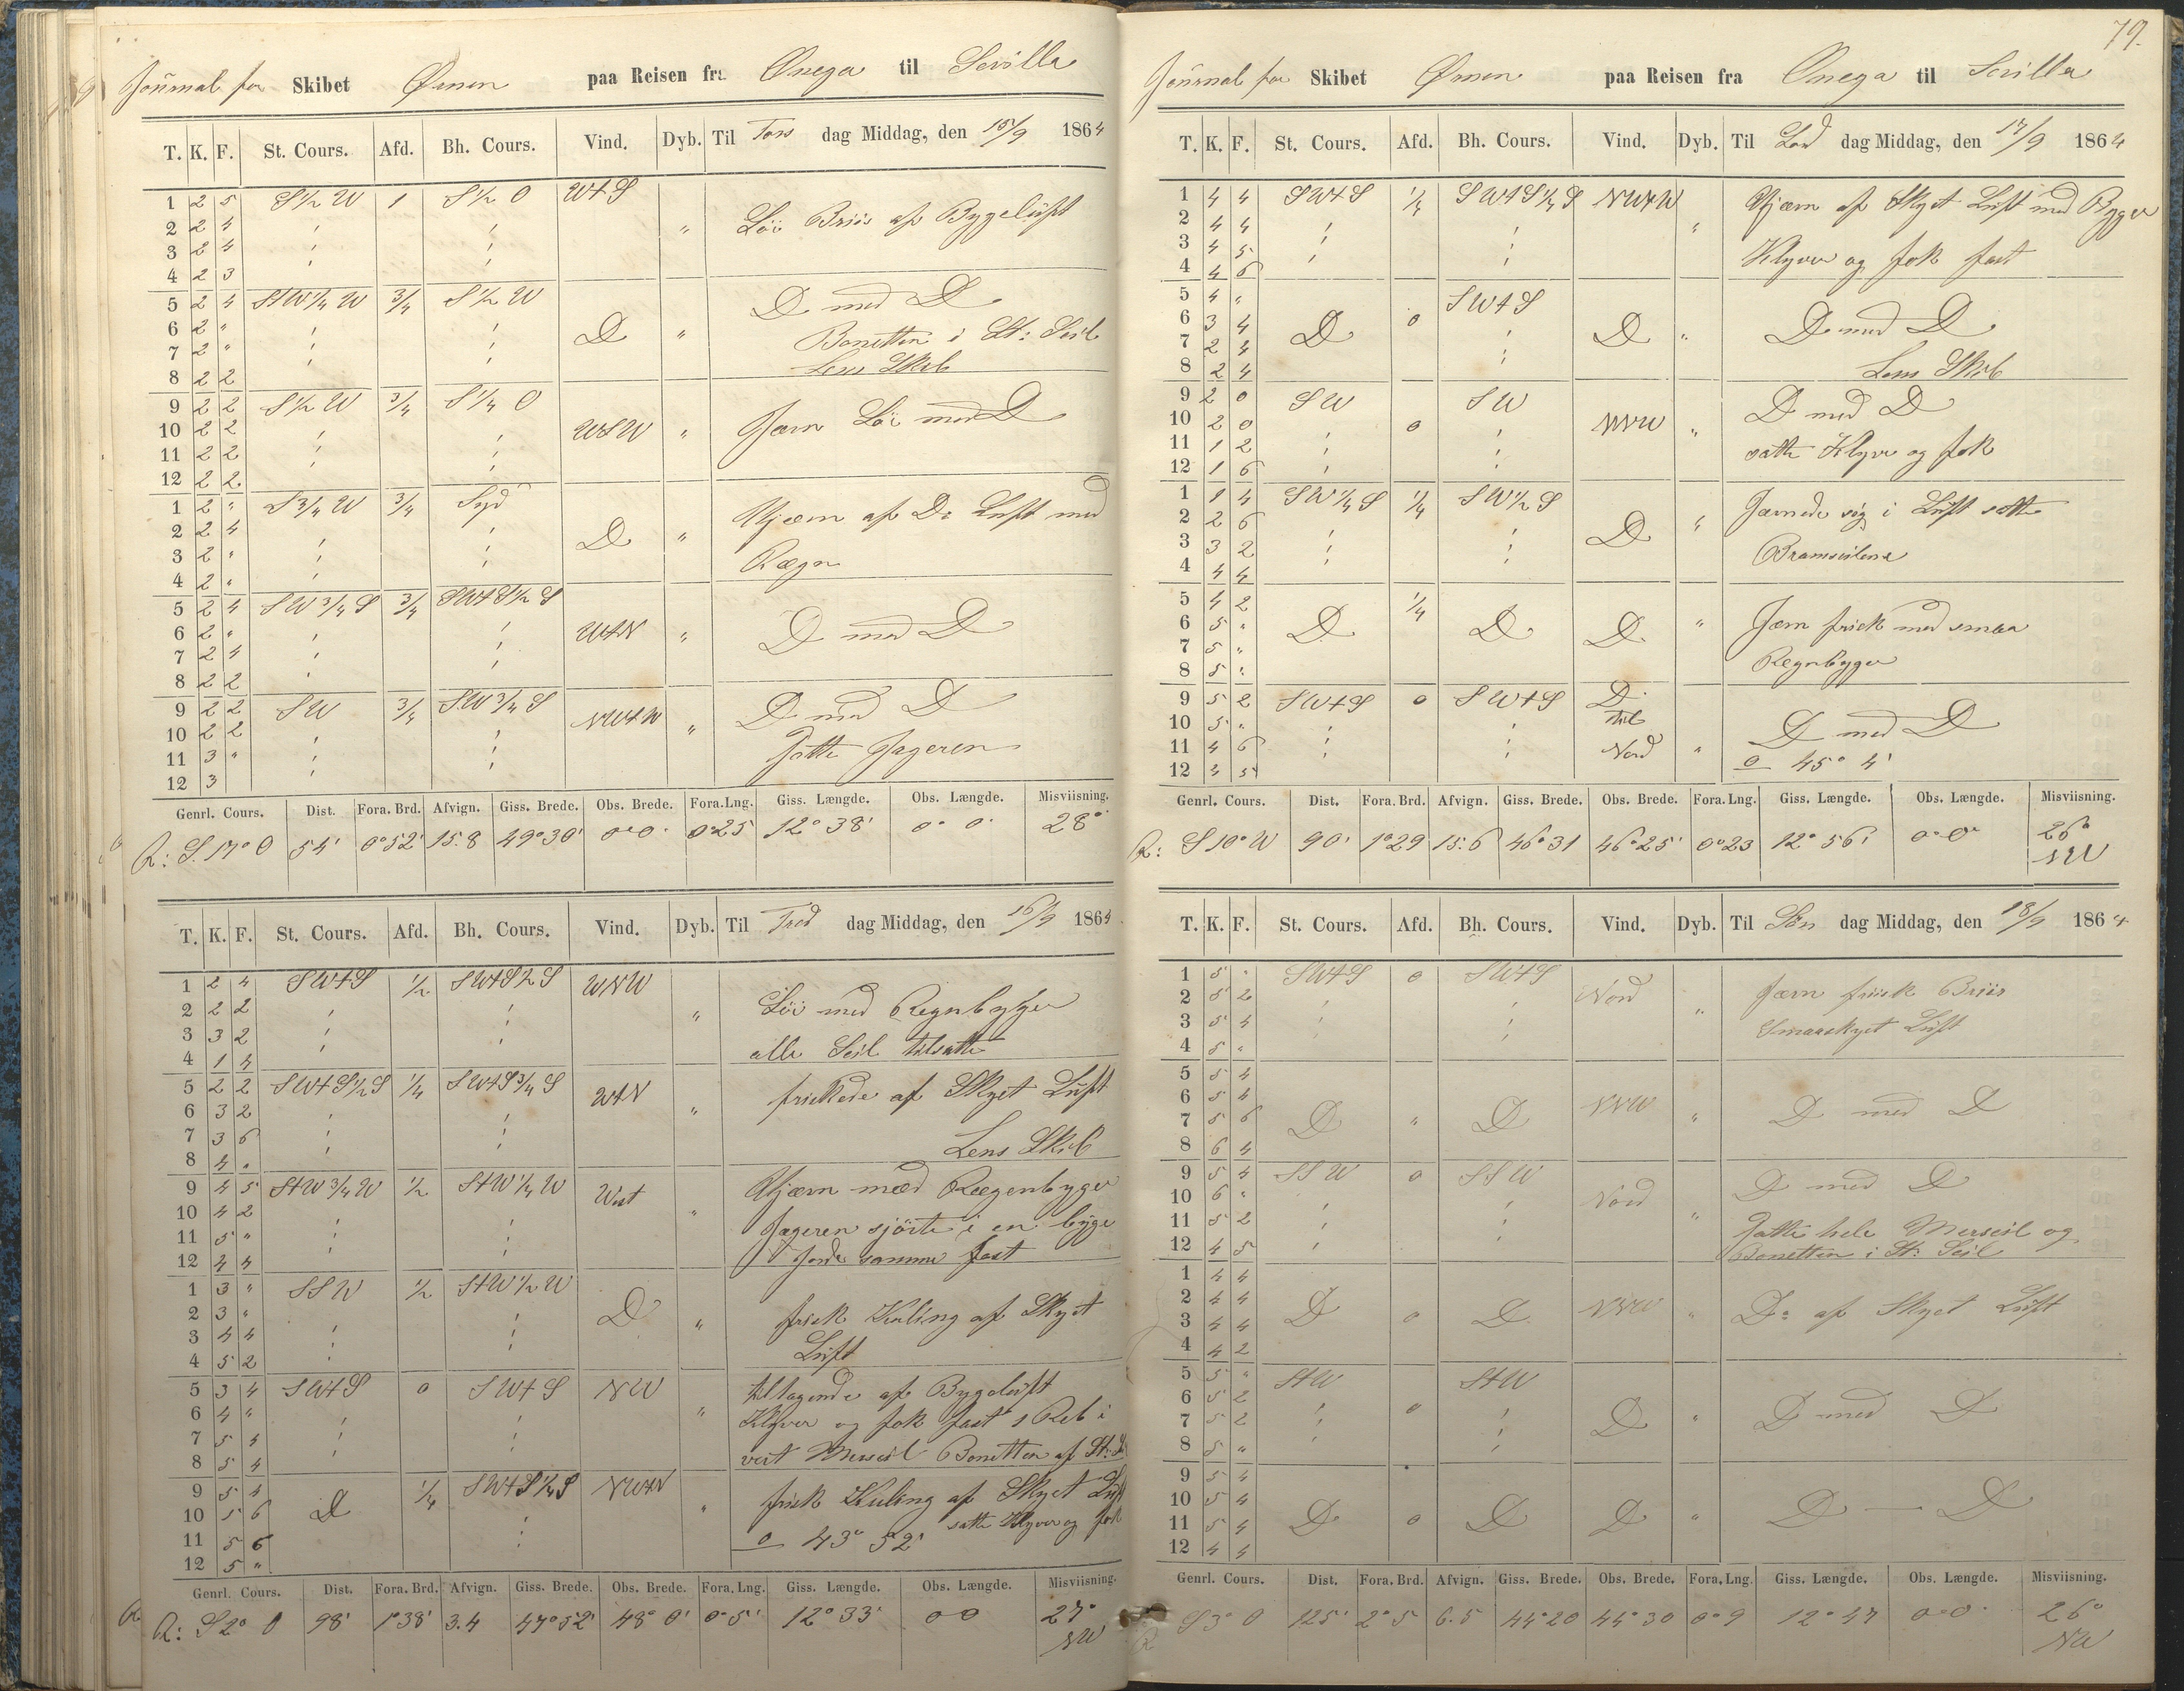 Journal for Skibet Ørnen paa Reisen fra Onega til Sevilla
T. K. F. St. Cours. Afd. Bh. Cours. Vind. Dyb. Til Tors dag Middag, den 15/9 1864
1 2 5 S½W 1 S½O W+S
2 2 4 " " Löi Briis af Bygeluft
3 2 4 " "
4 2 3 " "
5 2 4 S+W¼W 3/4 S½W D med D
6 2 " " " D " Bonetten i St: Seil
7 2 " " " Lens Skib
8 2 2
9 2 2 S½W 3/4 S¼O
10 2 2 " " WSW " Jævn Löi med D
11 2 2 " "
12 2 2
1 2 " S¾W 3/4 Syd Ujævn af Do Luft med
2 2 4 " " D "
3 2 " " " Rægn
4 2 " "
5 2 4 SW¾S 3/4 SW+S½S
6 2 " " " W+N " D med D
7 2 4 " "
8 2 2 "
9 2 2 SW 3/4 SW¾S NW+W D med D
10 2 2 " " "
11 3 " " " satte Jageren
12 3 "
Genrl. Cours. Dist. Fora. Brd. Afvign. Giss. Brede. Obs. Brede. Fora. Lng. Giss. Længde. Obs. Længde. Misviisning.
R: S. 17° O 54' 0°52' 15.8 49°30' 0°0' 0°25 12°38' 0° 0' 28°
T. K. F. St. Cours. Afd. Bh. Cours. Vind. Dyb. Til Fred dag Middag, den 16/9 1864
1 2 4 SW+S ½ SW+S½S WNW
2 2 2 " " " Löi med Regnbyger
3 3 2 " "
4 1 4 " alle Seil tilsatte
5 2 2 SW+S½S ¼ SW+S¾S W+N friskede af Skyet Luft
6 3 2 " " "
7 3 6 " "
8 4 " " Lens Skib
9 4 5 S+W¾W ½ S+W¼W West Ujævn med Rægenbyger
10 4 2 "
11 5 " " " Jageren sjörte i en byge
12 4 4 " " gjorde samme fast
1 3 " SSW ½ S+W½W
2 3 " " D " frisk Kuling af Skyet
3 4 4 " "
4 5 2 " " Luft
5 3 4 SW+S 0 SW+S NW tiltagende af Bygeluft
6 4 " " " " Klyver og fok fast 1 Reb i
7 5 4 " "
8 5 4 " " vert Merseil Bonetten af St: S
9 5 4 ¼ SW+S¼S NW+N frisk Kuling af Skyet Luft
10 5 6 D " " satte Klyver og fok
11 5 6 " 0 43° 52'
12 5 "
Genrl. Cours. Dist. Fora. Brd. Afvign. Giss. Brede. Obs. Brede. Fora. Lng. Giss. Længde. Obs. Længde. Misviisning.
R: S 2° O 98' 1°38' 3.4 47°52' 48° 0' 0°5' 12°33' 0 0 27°
NW
79.
Journal for Skibet Ørnen paa Reisen fra Onega til Sevilla
T. K. F. St. Cours. Afd. Bh. Cours. Vind. Dyb. Til Lörd dag Middag, den 17/9 1864
1 4 4 SW+S ¼ SW+S¼S NW+W Ujævn af Skyet Luft med Byger
2 4 4 " " "
3 4 5 " "
4 4 6 " " Klyver og fok fast
5 4 " SW+S
6 3 4 D 0 D " D med D
7 2 4 "
8 2 4 " Lens Skib
9 2 0 SW SW D med D
10 2 0 " 0 " NNW "
11 1 2 " " satte Klyver og fok
12 1 6 " "
1 1 4 SW¼S ¼ SW½S Jævnede sig i Luft satte
2 2 6 " " D "
3 3 2 " " Bramseilene
4 4 4 " "
5 4 2 ¼
6 5 " D D D " Jevn frisk med smaa
7 5 "
8 5 " Regnbyger
9 5 2 SW+S 0 SW+S D
10 5 " " " til D med D
11 4 6 " " Nord "
12 4 5 0 45° 4'
Genrl. Cours. Dist. Fora. Brd. Afvign. Giss. Brede. Obs. Brede. Fora. Lng. Giss. Længde. Obs. Længde. Misviisning.
R: S 10° W 90' 1°29 15.6 46°31 46°25' 0°23 12° 56' 0°0° 26°
NW
T. K. F. St. Cours. Afd. Bh. Cours. Vind. Dyb. Til Sön dag Middag, den 18/9 1864
1 5 " SW+S 0 SW+S Nord Jævn friisk Briis
2 5 2 " " "
3 5 4 " " Smaaskyet Luft
4 5 "
5 5 4
6 5 4 NNW
7 5 6 D " D " D med D
8 6 4
9 5 4 SSW 0 SSW D med D
10 6 " " " Nord
11 5 2 " " " Satte hele Merseil og
12 4 5 " Bonetten i St: Seil
1 4 4
2 4 4 D 0 D NNW " Do af Skyet Luft
3 4 4
4 4 2
5 5 " S+W S+W
6 5 2 " 0 " D med D
7 5 2 " " D "
8 5 " "
9 5 4
10 5 4 D — D
11 5 4 D 0 D D "
12 4 4
Genrl. Cours. Dist. Fora. Brd. Afvign. Giss. Brede. Obs. Brede. Fora. Lng. Giss. Længde. Obs. Længde. Misviisning.
R S 3° O 125' 2° 5 6.5 44°20 44°30 0°9 12° 47 0°0° 26°
NW